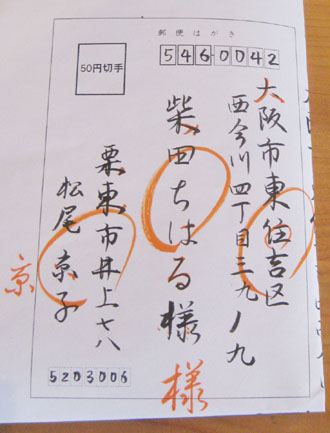 郵便はがき
546-0042
50円切手
大阪市東住吉区
西今川四丁目三九ノ九
柴田ちはる様
様
栗東市井上七八
松尾京子
京
5203006